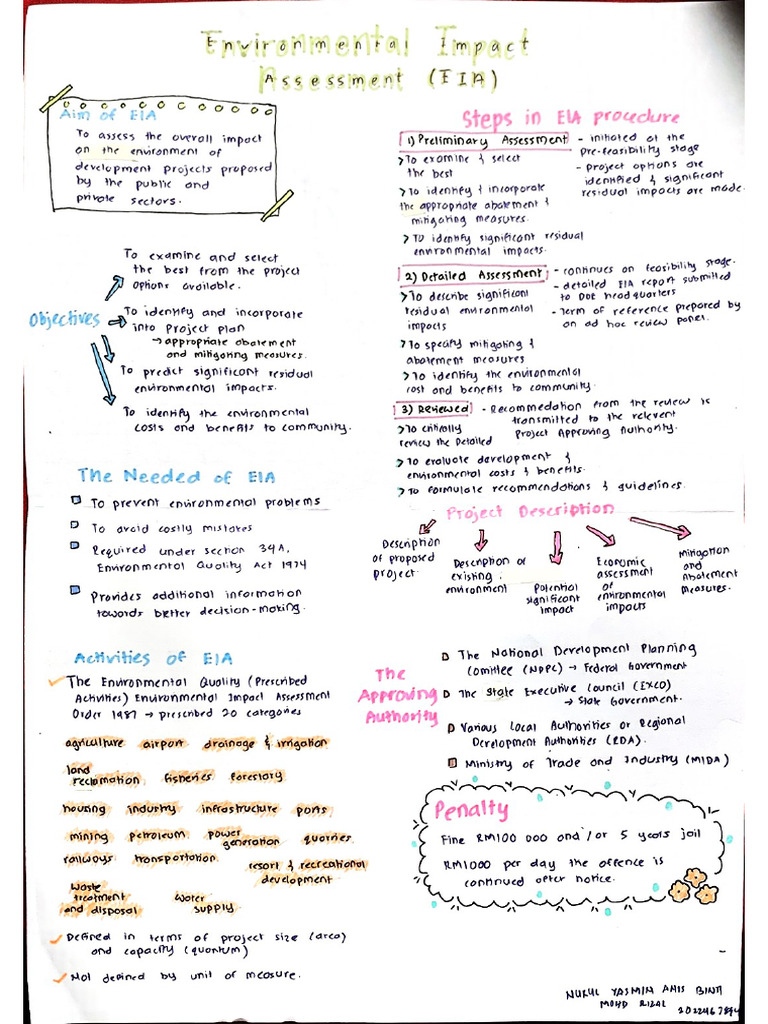 Environmental Impact
Assessment (EIA)
Aim of EIA
To assess the overall impact
on the environment of
development projects proposed
by the public and
private sectors.
Objectives
To examine and select
the best from the project
options available.
To identify and incorporate
into Project plan
→ appropriate abatement
and mitigating measures.
To predict significant residual
environmental impacts.
To identify the environmental
costs and benefits to community.
The Needed of EIA
To prevent environmental problems
To avoid costly mistakes
Required under section 34A,
Environmental Quality Act 1974
Provides additional information
towards better decision-making.
Activities of EIA
✓ The Environmental Quality (Prescribed
Activities) Environmental Impact Assessment
Order 1987 → prescribed 20 categories
agriculture airport drainage & irrigation
land
reclamation fisheries forestory
housing industry infrastructure ports
mining petroleum power
generation quarries
railways transportation resort & recreational
development
waste
treatment
and disposal
water
supply
✓ Defined in terms of project size (area)
and capacity (quantum)
✓ Not defined by unit of measure.
Steps in EIA procedure
1) Preliminary Assessment
- initiated at the
pre-feasibility stage
- project options are
identified & significant
residual impacts are made.
> To examine & select
the best
> To identify & incorporate
the appropriate abatement &
mitigating measures.
> To identify significant residual
environmental impacts.
2) Detailed Assessment
- continues on feasibility stage.
- detailed EIA report submitted
to DOE headquarters
- Term of reference prepared by
an ad hoc review panel.
> To describe significant
residual environmental
impacts
> To specify mitigating &
abatement measures
> To identify the environmental
cost and benefits to community.
3) Reviewed
- Recommedation from the review is
transmitted to the relevent
Project Approving Authority.
> To critically
review the Detailed
> To evaluate development &
environmental costs & benefits.
> To formulate recommendations & guidelines.
Project Description
Description
of proposed
project.
Description of
existing
environment
Potential
significant
impact
Economic
assessment
of
environmental
impacts
Mitigation
and
Abatement
Measures.
The
Approving
Authority
The National Development Planning
Comittee (NDPC) → Federal Government
The State Executive Council (EXCO)
→ State Government.
Various Local Authorities or Regional
Development Authorities (RDA).
Ministry of Trade and Industry (MIDA)
Penalty
Fine RM100 000 and/or 5 years jail
RM1000 per day the offence is
continued after notice.
NURUL YASMIN ANIS BINTI
MOHD RIZAL